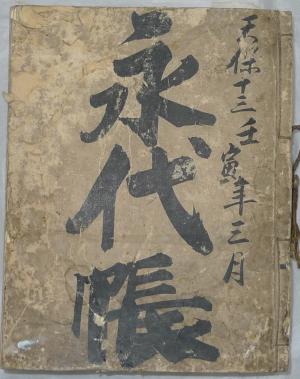 天保十三壬寅年三月
永代帳